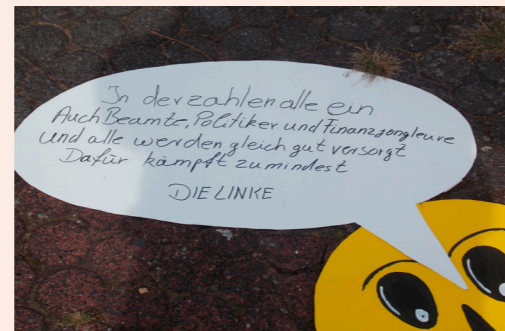 In der zahlen alle ein
Auch Beamte, Politiker und Finanzgongleure
und alle werden gleich gut versorgt
Dafür kämpft zumindest
DIE LINKE